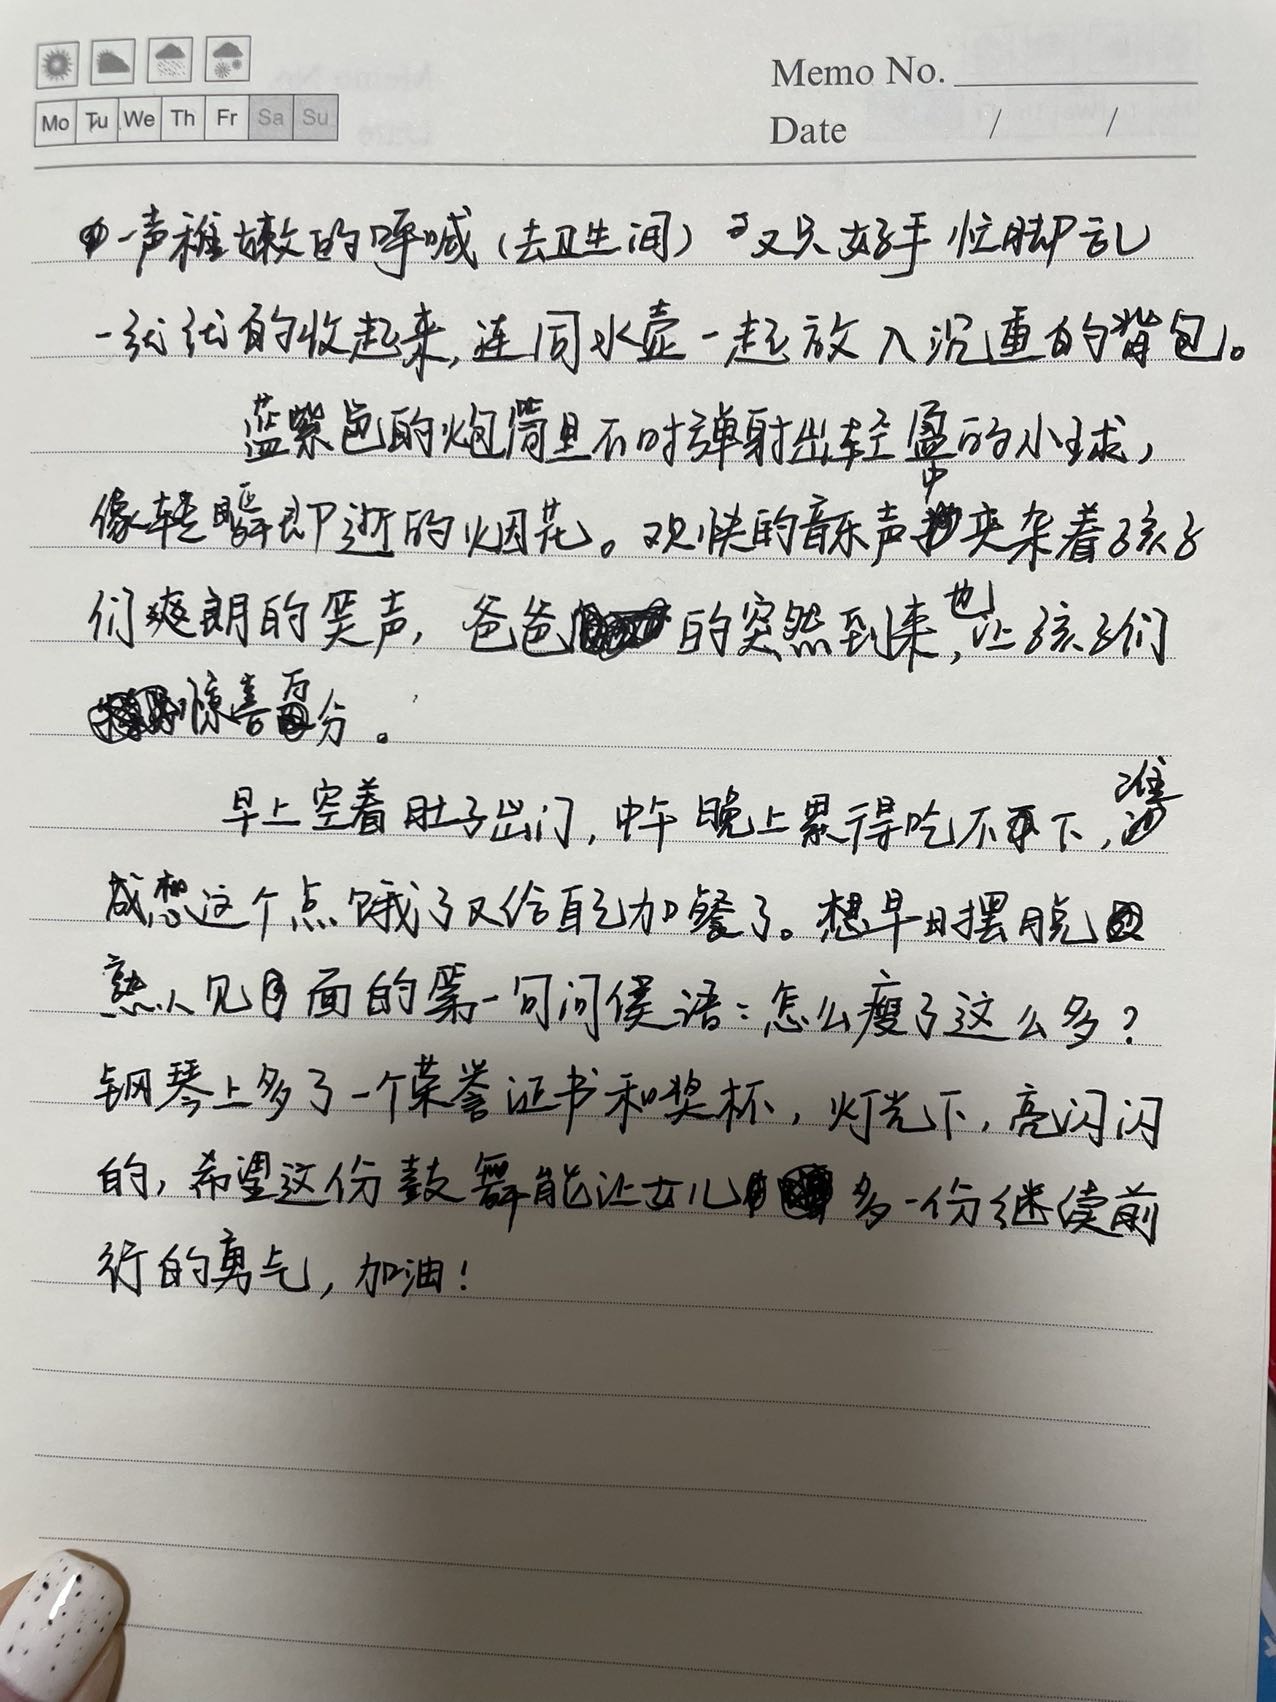 Memo No.
Mo Tu We Th Fr Sa Su
Date / /
一声稚嫩的呼喊（去卫生间）又只好手忙脚乱
一张张的收起来,连同水壶一起放入沉重的背包。
蓝紫色的炮筒里不时弹射出轻盈的小球，
像轻瞬即逝的烟花。欢快的音乐声中夹杂着孩子
们爽朗的笑声，爸爸的突然到来,也让孩子们
惊喜百分。
早上空着肚子出门，中午晚上累得吃不下，谁
成想这个点饿了又给自己加餐了。想早日摆脱
熟人见面的第一句问侯语：怎么瘦了这么多？
钢琴上多了一个荣誉证书和奖杯，灯光下，亮闪闪
的，希望这份鼓舞能让女儿多一份继续前
行的勇气，加油！